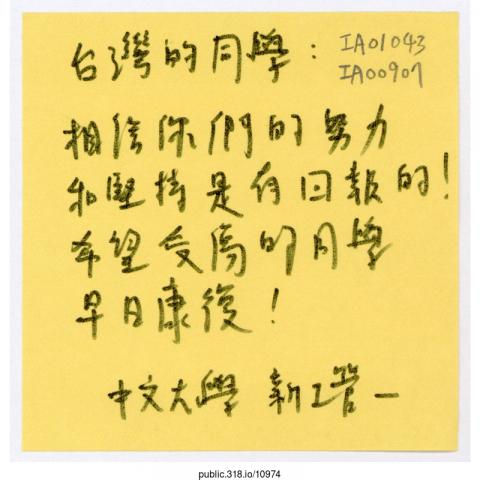 台灣的同學：
IA01043
IA00907
相信你們的努力
和堅持是有回報的！
希望受傷的同學
早日康復！
中文大學 新工管一
public.318.io/10974